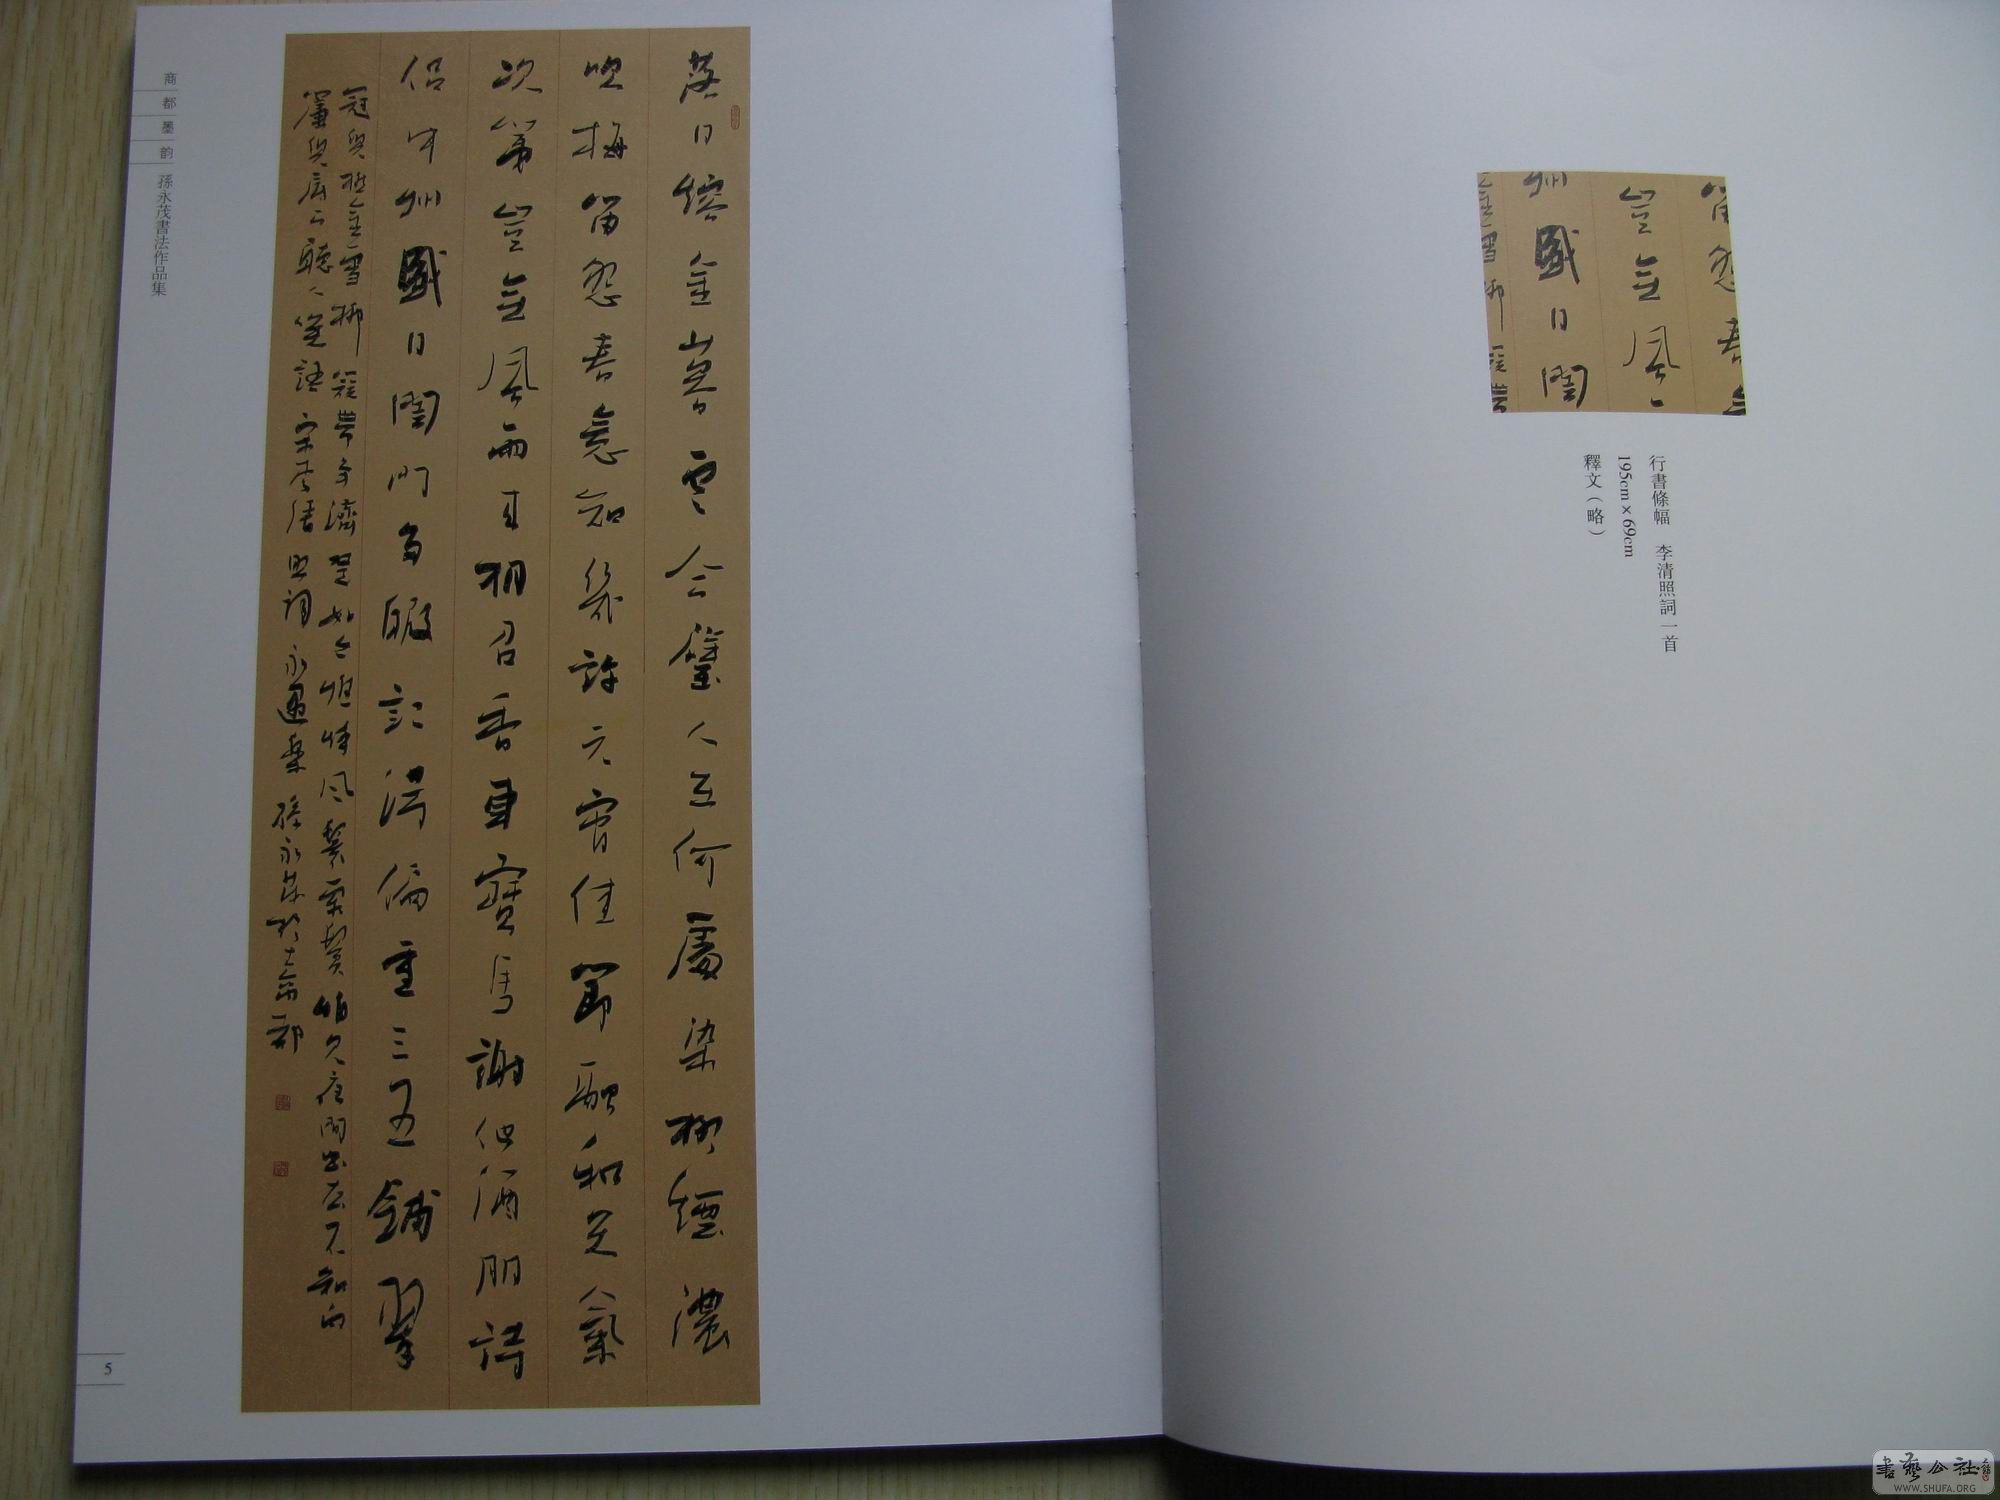 商都墨韵 孫永茂書法作品集
落日熔金暮雲合璧人在何處染柳煙濃
吹梅笛怨春意知幾許元宵佳節融和天氣
次第豈無風雨來相召香車寶馬謝他酒朋詩
侶中州盛日閨門多暇記得偏重三五鋪翠
冠兒撚金雪柳簇帶爭濟楚如今憔悴風鬟霜鬢怕見夜間出去不如向
簾兒底下聽人笑語 宋李清照詞 永遇樂 孫永茂於古商都
5
行書條幅 李清照詞一首
195cm×69cm
釋文（略）
書藝公社
WWW.SHUFA.ORG